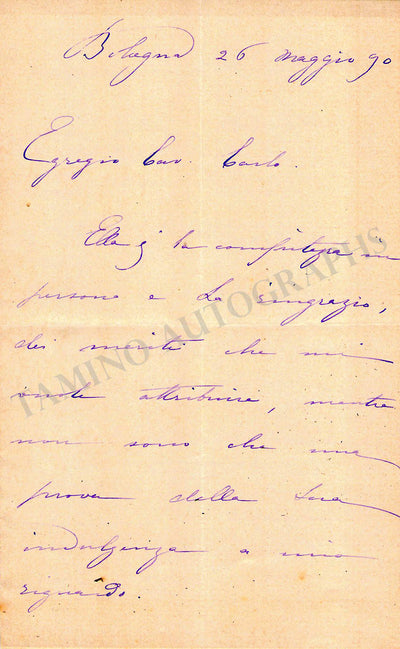 Bologna 26 maggio 90
Egregio Cav. Carlo.
Ella è la compitezza in
persona e La ringrazio,
dei meriti che mi
vuole attribuire, mentre
non sono che una
prova della Sua
indulgenza a mio
riguardo.
TAMINO AUTOGRAPHS